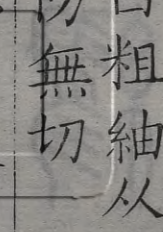 粗紬从
無切